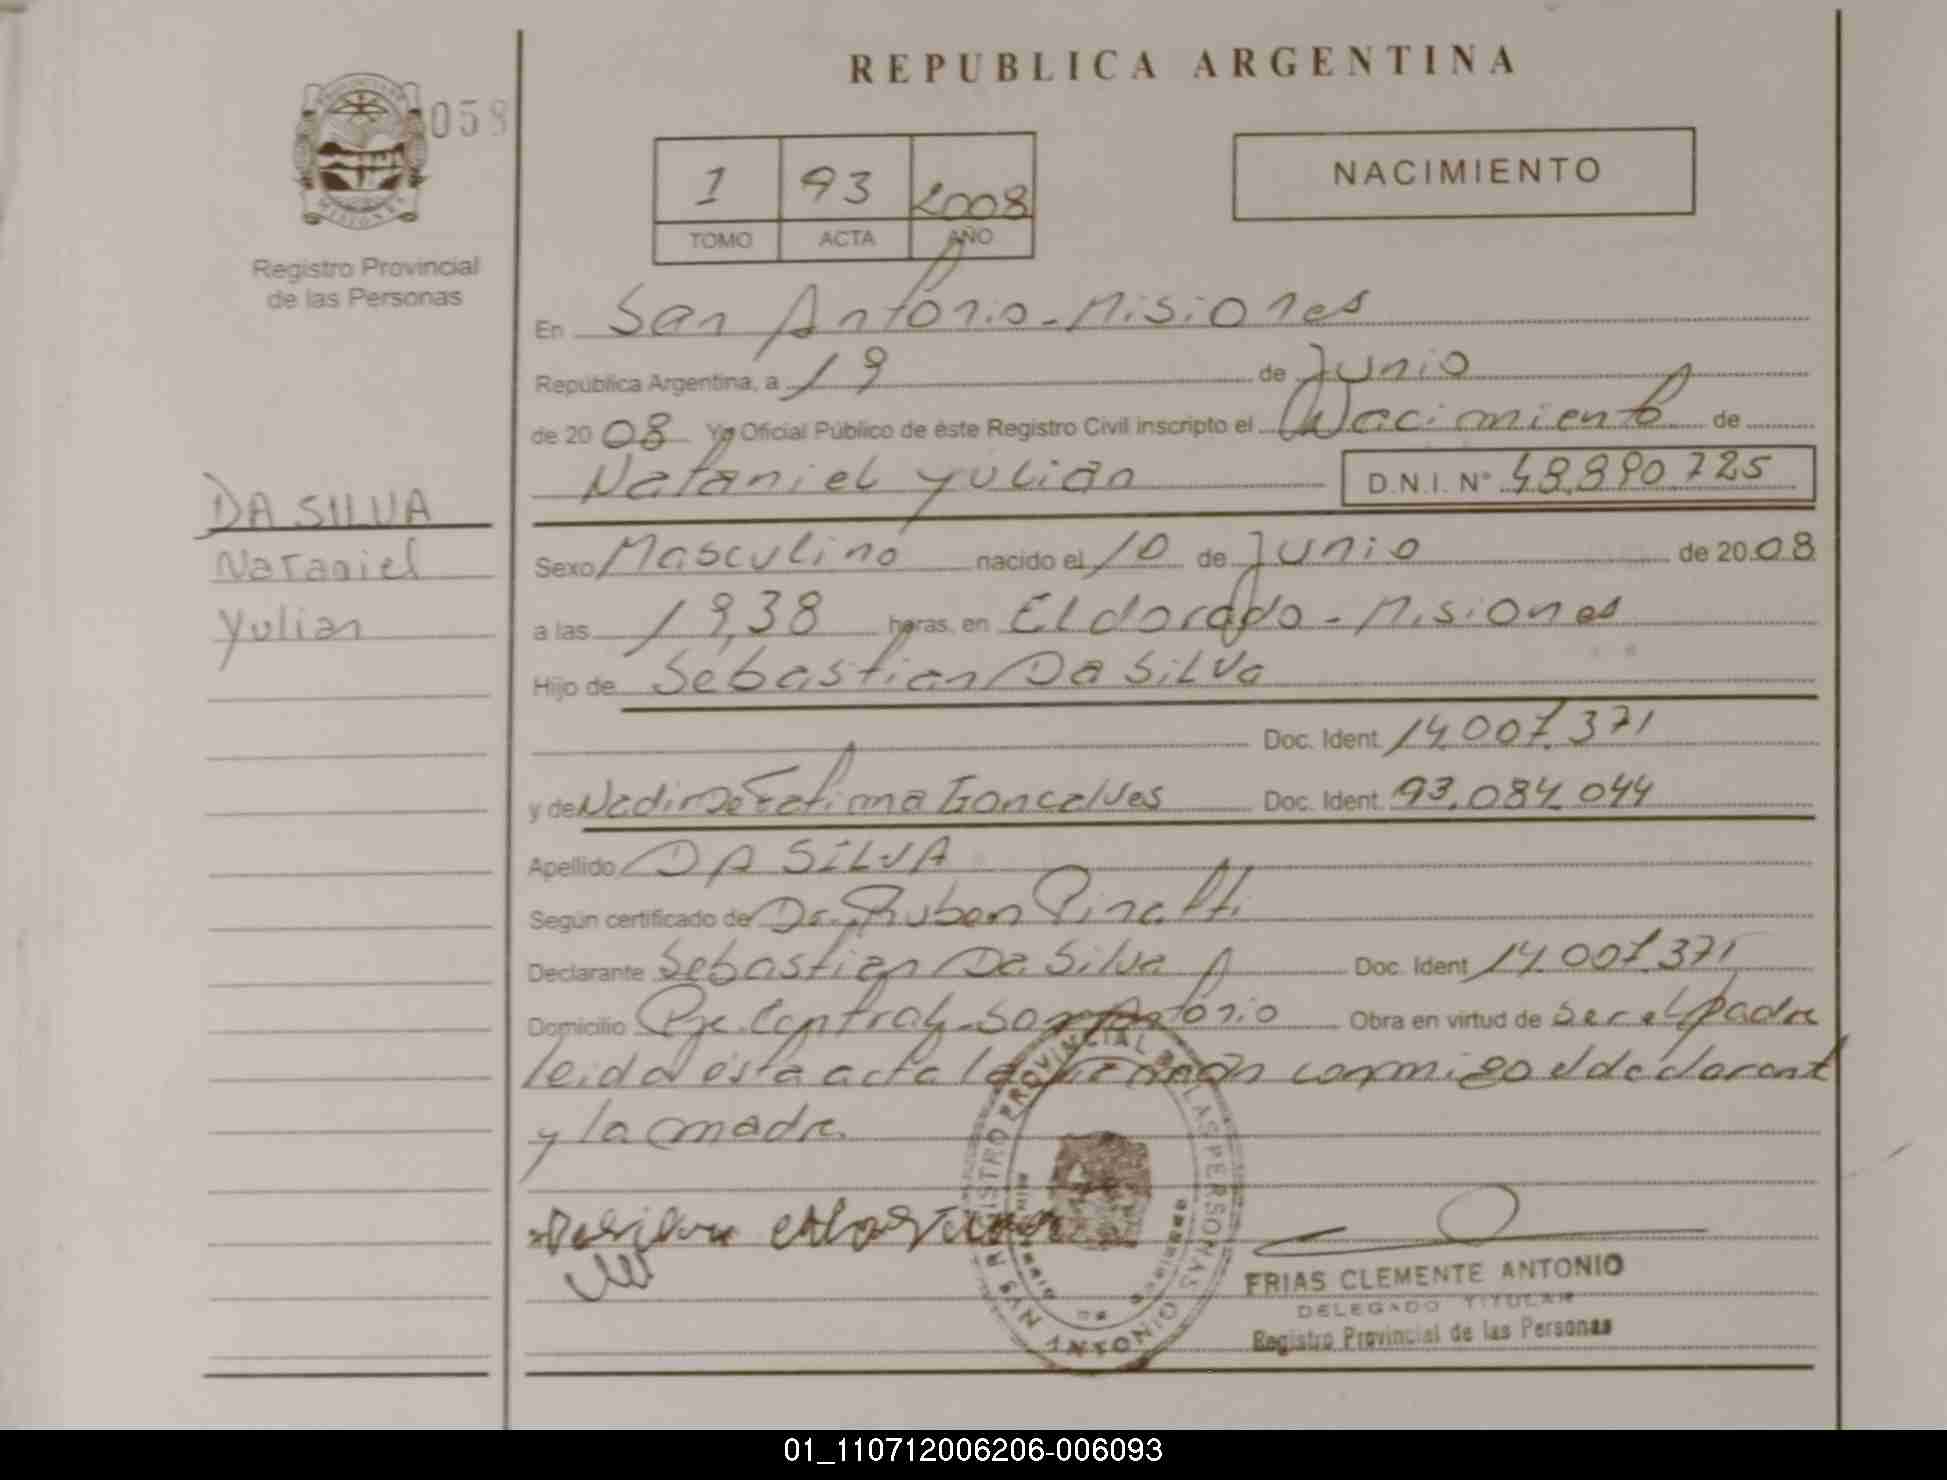 REPUBLICA ARGENTINA
058
PROVINCIA DE
MISIONES
Registro Provincial
de las Personas
1 93 2008
TOMO ACTA AÑO
NACIMIENTO
En San Antonio - Misiones
República Argentina, a 19 de Junio
de 2008 Yo Oficial Público de éste Registro Civil inscripto el Nacimiento de
Nataniel Yulián D.N.I. Nº 48.890.725
DA SILVA
Nataniel
Yulian
Sexo Masculino nacido el 10 de Junio de 2008
a las 19,38 horas, en Eldorado - Misiones
Hijo de Sebastian Da Silva
Doc. Ident. 14.007.371
y de Nadir De Fatima Goncalves Doc. Ident. 93.084.044
Apellido DA SILVA
Según certificado de Dr. Ruben
Declarante Sebastian Da Silva Doc. Ident 14.007.371
Domicilio Pje. Central - San Antonio Obra en virtud de Ser el padre
leida esta acta la firman conmigo el declarant
y la madre
REGISTRO PROVINCIAL DE LAS PERSONAS
SAN ANTONIO
FRIAS CLEMENTE ANTONIO
DELEGADO TITULAR
Registro Provincial de las Personas
01_110712006206-006093